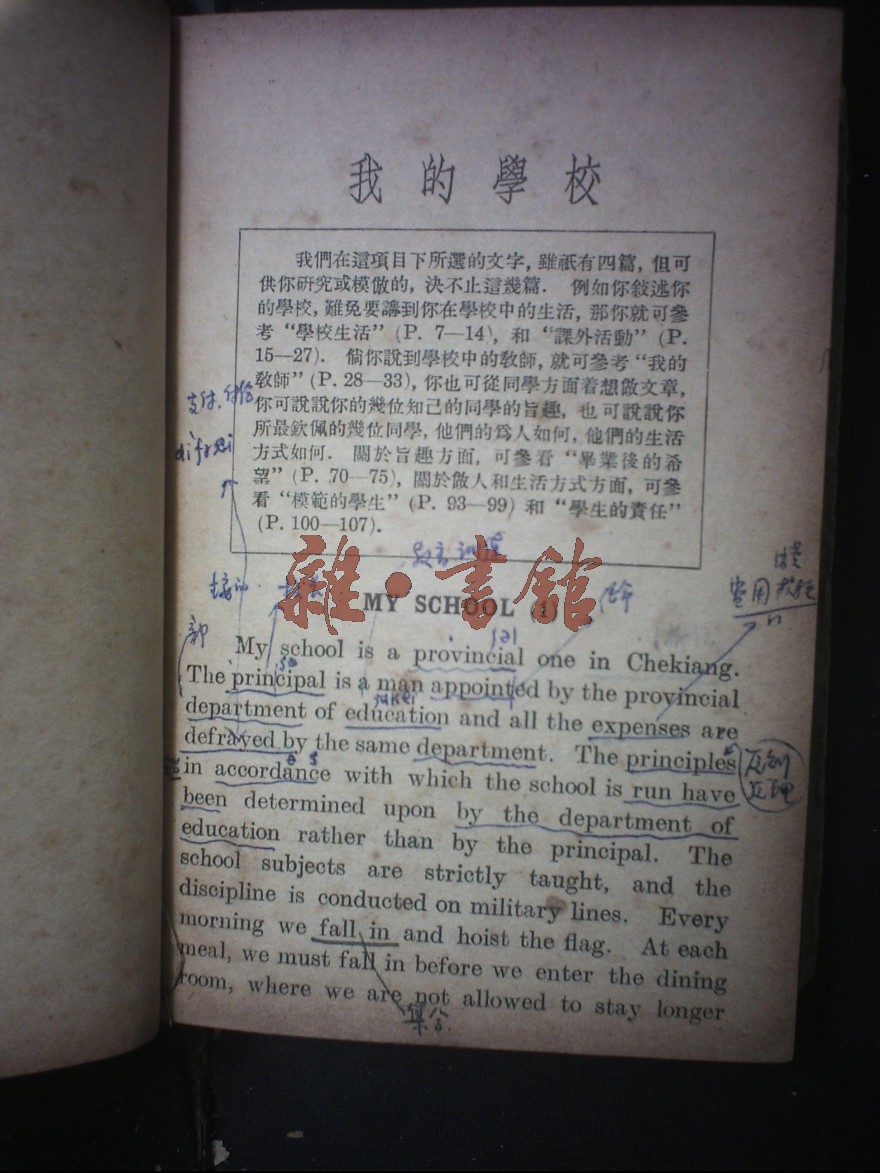 我的學校
我們在這項目下所選的文字，雖祇有四篇，但可
供你研究或模倣的，決不止這幾篇． 例如你敘述你
的學校，難免要講到你在學校中的生活，那你就可參
考“學校生活”(P. 7—14)，和“課外活動”(P.
15—27)． 倘你說到學校中的教師，就可參考“我的
教師”(P. 28—33)，你也可從同學方面着想做文章，
你可說說你的幾位知己的同學的旨趣，也可說說你
所最欽佩的幾位同學，他們的爲人如何，他們的生活
方式如何． 關於旨趣方面，可參看“畢業後的希
望”(P. 70—75)，關於做人和生活方式方面，可參
看“模範的學生”(P. 93—99)和“學生的責任”
(P. 100—107)．
支付
雜·書館
費用
MY SCHOOL (1)
部
My school is a provincial one in Chekiang.
The principal is a man appointed by the provincial
department of education and all the expenses are
defrayed by the same department. The principles
in accordance with which the school is run have
been determined upon by the department of
education rather than by the principal. The
school subjects are strictly taught, and the
discipline is conducted on military lines. Every
morning we fall in and hoist the flag. At each
meal, we must fall in before we enter the dining
room, where we are not allowed to stay longer
集合